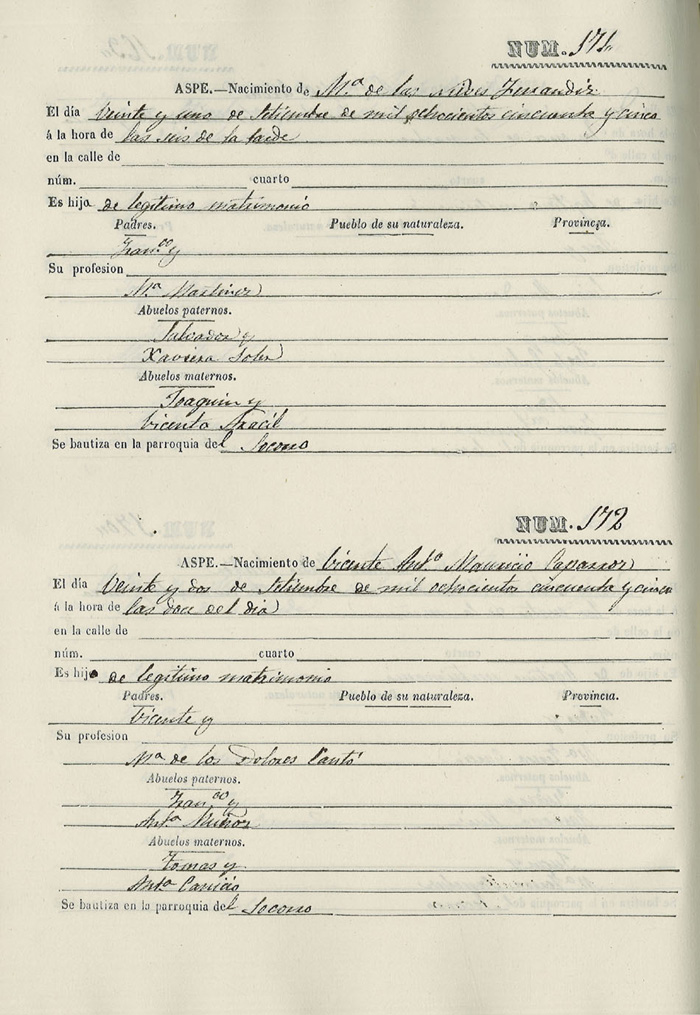 NUM. 171
ASPE.—Nacimiento de Mª de las Nieves Ferrandiz
El día Veinte y uno de Setiembre de mil ochocientos cincuenta y cinco
á la hora de las seis de la tarde
en la calle de
núm. cuarto
Es hija de legitimo matrimonio
Padres. Pueblo de su naturaleza. Provincia.
Franco y
Su profesion
Mª Martinez
Abuelos paternos.
Salvador y
Xaviera Soler
Abuelos maternos.
Joaquin y
Vicenta Aracil
Se bautiza en la parroquia del Socorro
NUM. 172
ASPE.—Nacimiento de Vicente Antº Mauricio
El día Veinte y dos de Setiembre de mil ochocientos cincuenta y cinco
á la hora de las doce del dia
en la calle de
núm. cuarto
Es hijo de legitimo matrimonio
Padres. Pueblo de su naturaleza. Provincia.
Vicente y
Su profesion
Mª de los Dolores Cantó
Abuelos paternos.
Franco y
Antª Muñoz
Abuelos maternos.
Tomas y
Antª
Se bautiza en la parroquia del Socorro